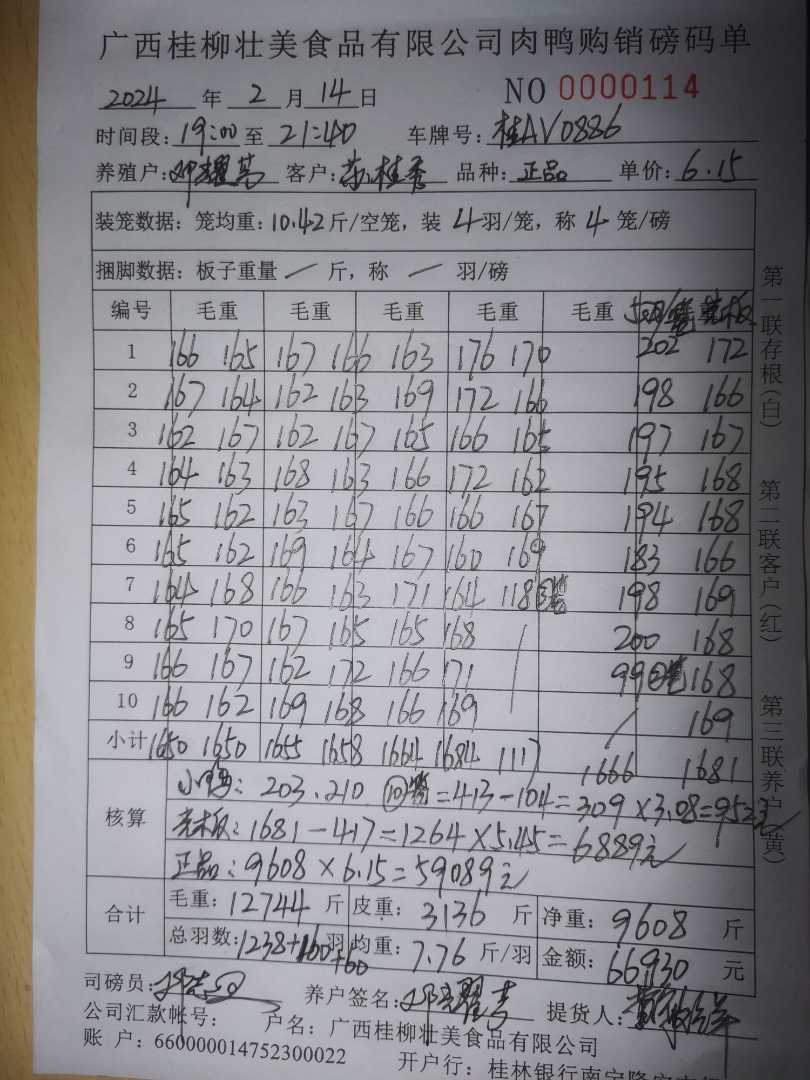 广西桂柳壮美食品有限公司肉鸭购销磅码单
2024年2月14日 NO 0000114
时间段:19:00至21:40 车牌号:桂AV0886
养殖户:邓耀英 客户:苏桂秀 品种:正品 单价:6.15
装笼数据:笼均重:10.42斤/空笼,装4羽/笼,称4笼/磅
捆脚数据:板子重量/斤,称/羽/磅
编号 毛重 毛重 毛重 毛重 毛重
1 166 165 167 166 163 176 170 202 172
2 167 164 162 163 169 172 166 198 166
3 162 167 162 167 165 166 165 197 167
4 164 163 168 163 166 172 162 195 168
5 165 162 163 167 166 166 167 194 168
6 165 162 169 164 167 160 164 183 166
7 164 168 166 163 171 164 118 ③笼 198 169
8 165 170 167 165 165 168 200 168
9 166 167 162 172 166 171 99 ②笼 168
10 166 162 169 168 166 169 169
小计 1650 1650 1655 1658 1664 1684 1117 1666 1681
核算
小鸭:203.210 ⑩笼=413-104=309×3.08=952元
壳木板:1681-417=1264×5.45=6889元
正品:9608×6.15=59089元
合计 毛重:12744斤 皮重:3136斤 净重:9608斤
总羽数:1238+160+60羽 均重:7.76斤/羽 金额:66930元
司磅员: 养户签名: 提货人:
公司汇款帐号: 户名:广西桂柳壮美食品有限公司
账 户:660000014752300022 开户行:桂林银行南宁隆安支行
第一联存根(白) 第二联客户(红) 第三联养户(黄)